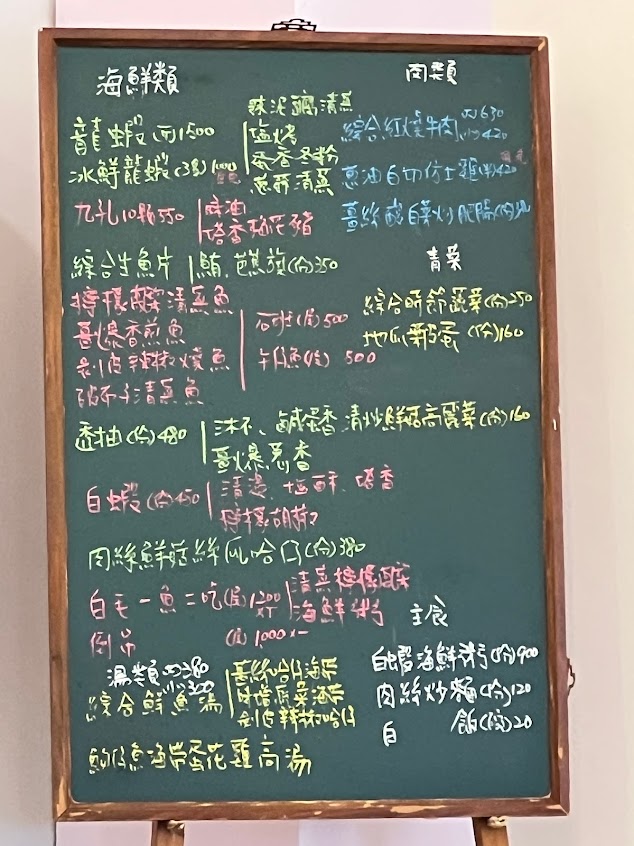 海鮮類
龍蝦(兩)1500
蒜泥 清蒸
鹽烤
蛋香冬粉
蔥 清蒸
冰鮮龍蝦(3隻)1000
九孔10顆550
麻油
塔香
綜合生魚片
鮪、芭蕉旋(份)350
檸檬酸菜清蒸魚
薑爆香煎魚
剝皮辣椒燒魚
破布子清蒸魚
石斑(尾)500
午仔魚(尾)500
透抽(份)480
沐不、鹹蛋香
薑爆蔥香
白蝦(份)450
清燙、塩酥、塔香
檸檬胡椒
肉絲鮮菇絲瓜哈仔(份)380
白毛一魚二吃(尾)1200
清蒸檸檬
海鮮粥
倒吊
(尾)1,000
湯類(大)380
(小)300
綜合鮮魚湯
薑絲哈仔海菜
味噌 菜海菜
剝皮辣椒哈仔
魩仔魚海帶蛋花雞高湯
肉類
綜合紅燒牛肉(大)630
(小)420
蔥油白切仿土雞(半)420
薑絲酸白菜炒肥腸(份)
青菜
綜合時節蔬菜(份)250
地瓜 蛋(份)160
清炒鮮菇高麗菜(份)160
主食
白蝦海鮮粥(份)900
肉絲炒麵(份)120
白飯(份)20